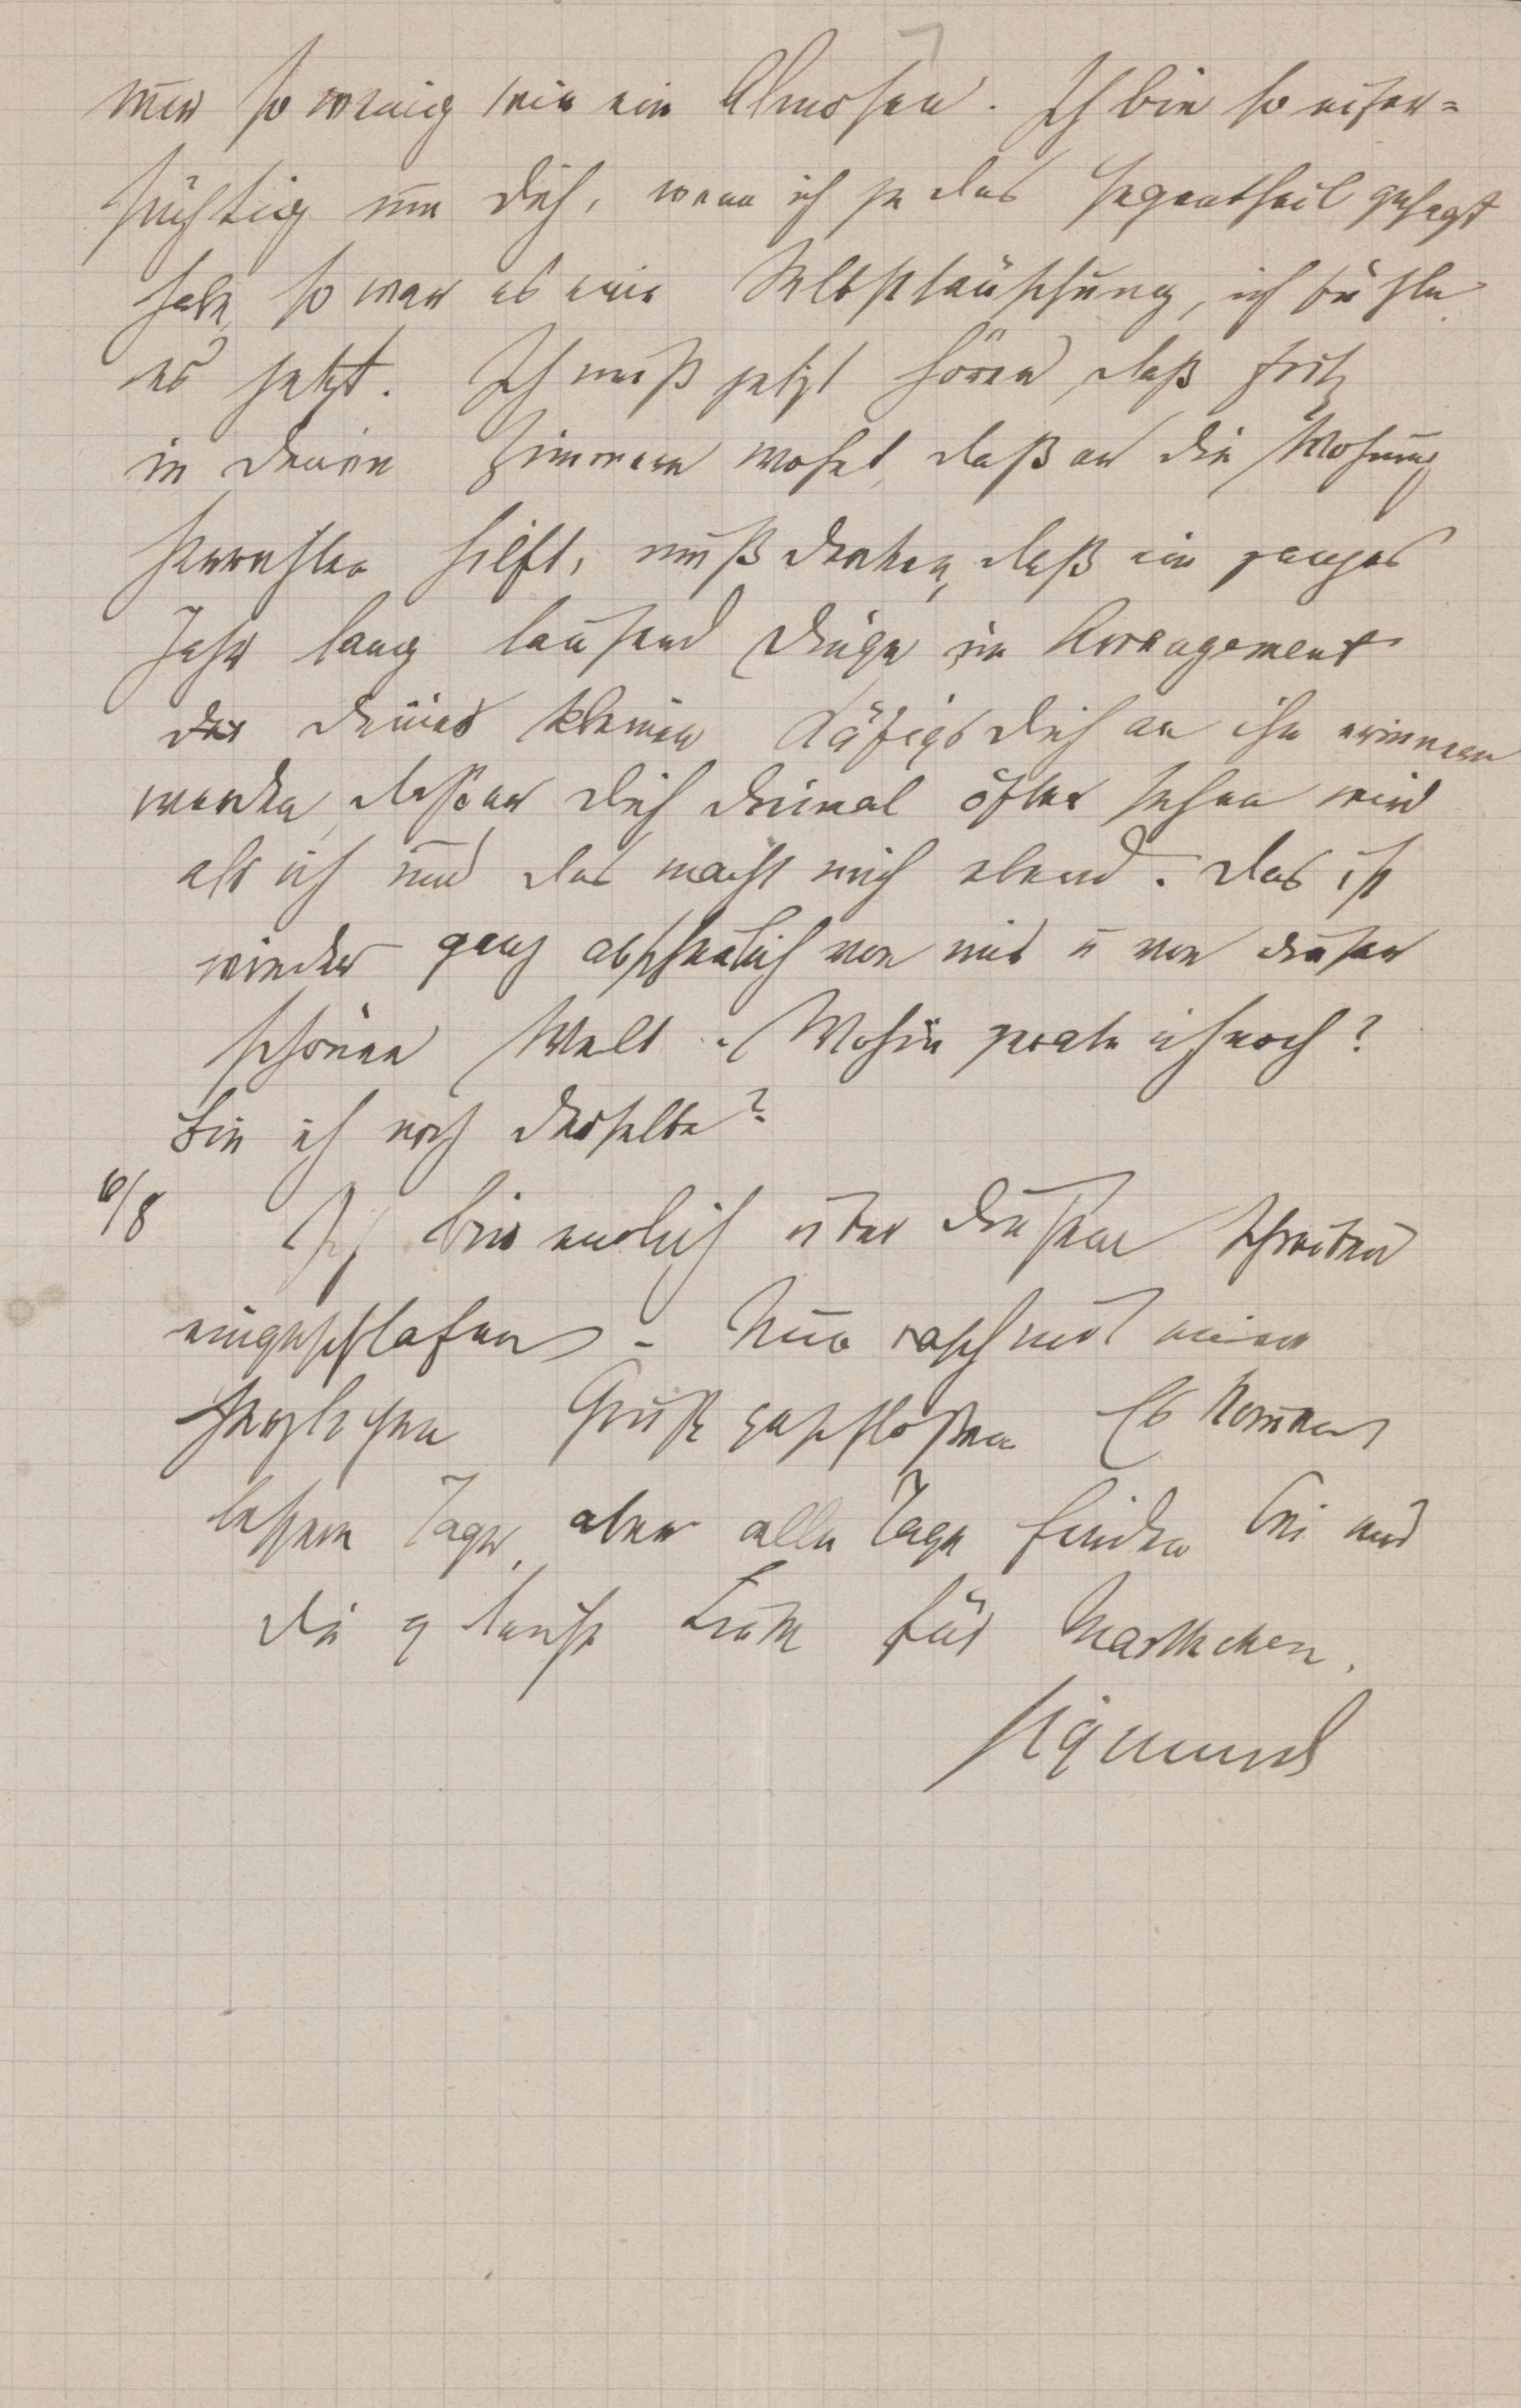 mer so wenig wie ein Almosen. Ich bin so eifer=
süchtig um Dich, wenn ich je das Gegentheil gesagt
habe, so war es eine Selbsttäuschung, ich fühle
es jetzt. Ich muß jetzt hören, daß Fritz
in Deinen Zimmern wohnt, daß er die Wohnung
herrichten hilft, muß denken, daß ein ganzes
Jahr lang tausend Dinge im Arrangement
des Deines kleinen Käfigs Dich an ihn erinnern
werden, daß er Dich dreimal öfter sehen wird
als ich und das macht mich elend. Das ist
wieder ganz abscheulich von mir u von dieser
schönen Welt. Wohin gerate ich noch?
Bin ich noch derselbe?
6/8 Ich bin endlich über diesem Schreiben
eingeschlafen. Nun rasch mit einem
herzlichen Gruß geschlossen. Es kommen
bessere Tage, aber alle Tage finden bei mir
die gleiche Liebe für Marthchen.
Sigmund